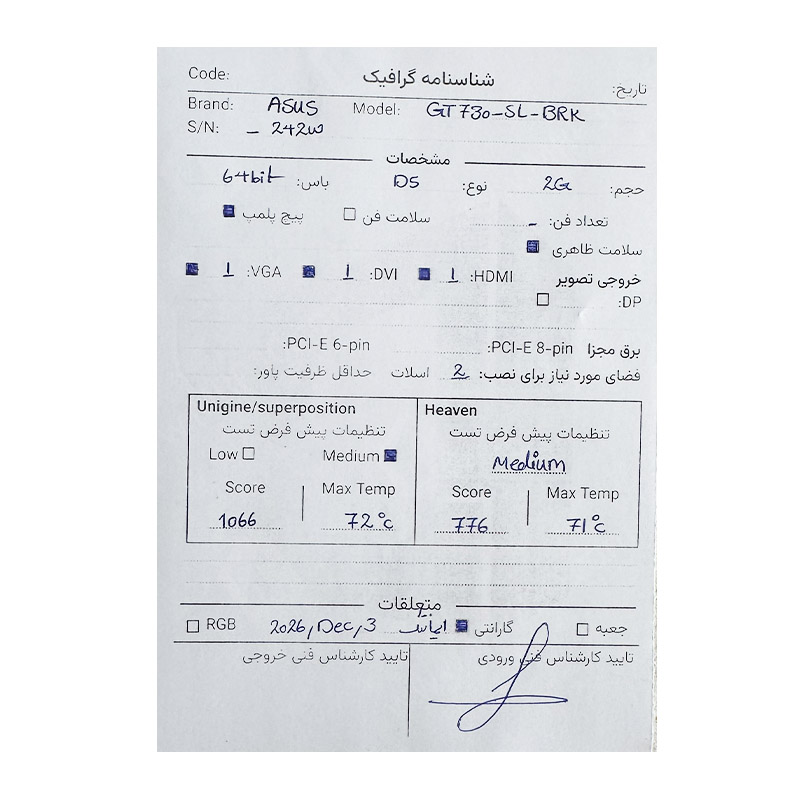 Code: شناسنامه گرافیک تاریخ:
Brand: ASUS Model: GT730-SL-BRK
S/N: - 242w
مشخصات
حجم: 2G نوع: D5 باس: 64bit
تعداد فن: - سلامت فن پیچ پلمپ
سلامت ظاهری
خروجی تصویر HDMI: 1 DVI: 1 VGA: 1
DP:
برق مجزا PCI-E 8-pin: PCI-E 6-pin:
فضای مورد نیاز برای نصب: 2 اسلات حداقل ظرفیت پاور:
Unigine/superposition Heaven
تنظیمات پیش فرض تست تنظیمات پیش فرض تست
Low Medium Medium
Score Max Temp Score Max Temp
1066 72°c 776 71°c
متعلقات
جعبه گارانتی الماس 2026, Dec, 3 RGB
تایید کارشناس فنی ورودی تایید کارشناس فنی خروجی